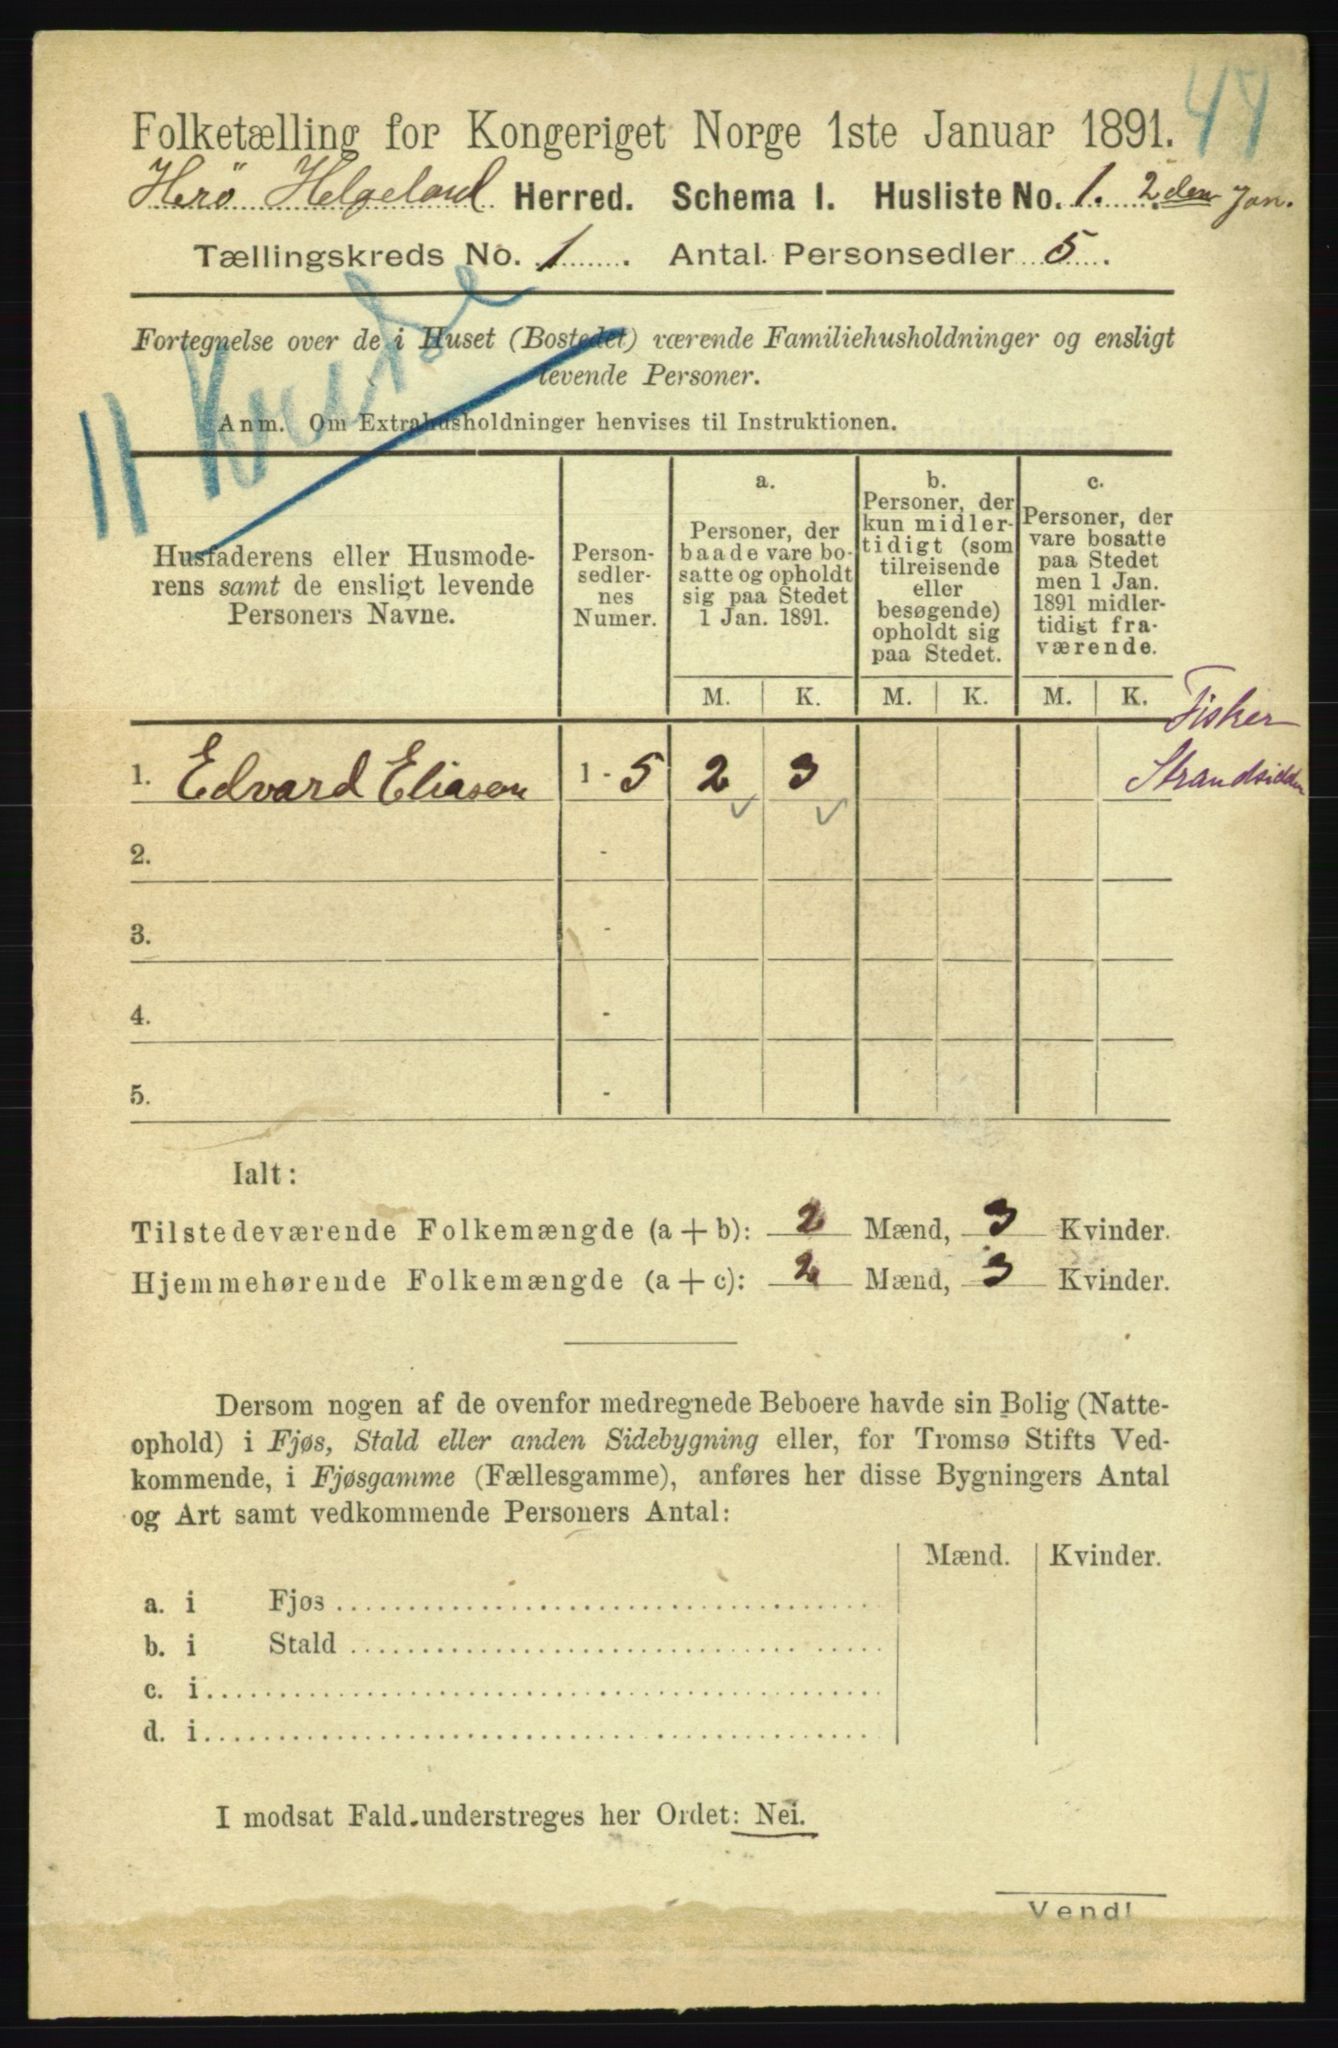 44
Folketælling for Kongeriget Norge 1ste Januar 1891.
Herö Helgeland Herred. Schema I. Husliste No. 1. 2den Jan.
Tællingskreds No. 1. Antal Personsedler 5.
Fortegnelse over de i Huset (Bostedet) værende Familiehusholdninger og ensligt
levende Personer.
Anm. Om Extrahusholdninger henvises til Instruktionen.
11
Husfaderens eller Husmode-
rens samt de ensligt levende
Personers Navne.
Person-
sedler-
nes
Numer.
a.
Personer, der
baade vare bo-
satte og opholdt
sig paa Stedet
1 Jan. 1891.
b.
Personer, der
kun midler-
tidigt (som
tilreisende
eller
besøgende)
opholdt sig
paa Stedet.
c.
Personer, der
vare bosatte
paa Stedet
men 1 Jan.
1891 midler-
tidigt fra-
værende.
M. K. M. K. M. K.
Fisker
1. Edvard Eliasen 1 - 5 2 3 Strandsidder
2. -
3. -
4. -
5. -
Ialt:
Tilstedeværende Folkemængde (a + b): 2 Mænd, 3 Kvinder.
Hjemmehørende Folkemængde (a + c): 2 Mænd, 3 Kvinder.
Dersom nogen af de ovenfor medregnede Beboere havde sin Bolig (Natte-
ophold) i Fjøs, Stald eller anden Sidebygning eller, for Tromsø Stifts Ved-
kommende, i Fjøsgamme (Fællesgamme), anføres her disse Bygningers Antal
og Art samt vedkommende Personers Antal:
Mænd. Kvinder.
a. i Fjøs
b. i Stald
c. i
d. i
I modsat Fald understreges her Ordet: Nei.
Vend!